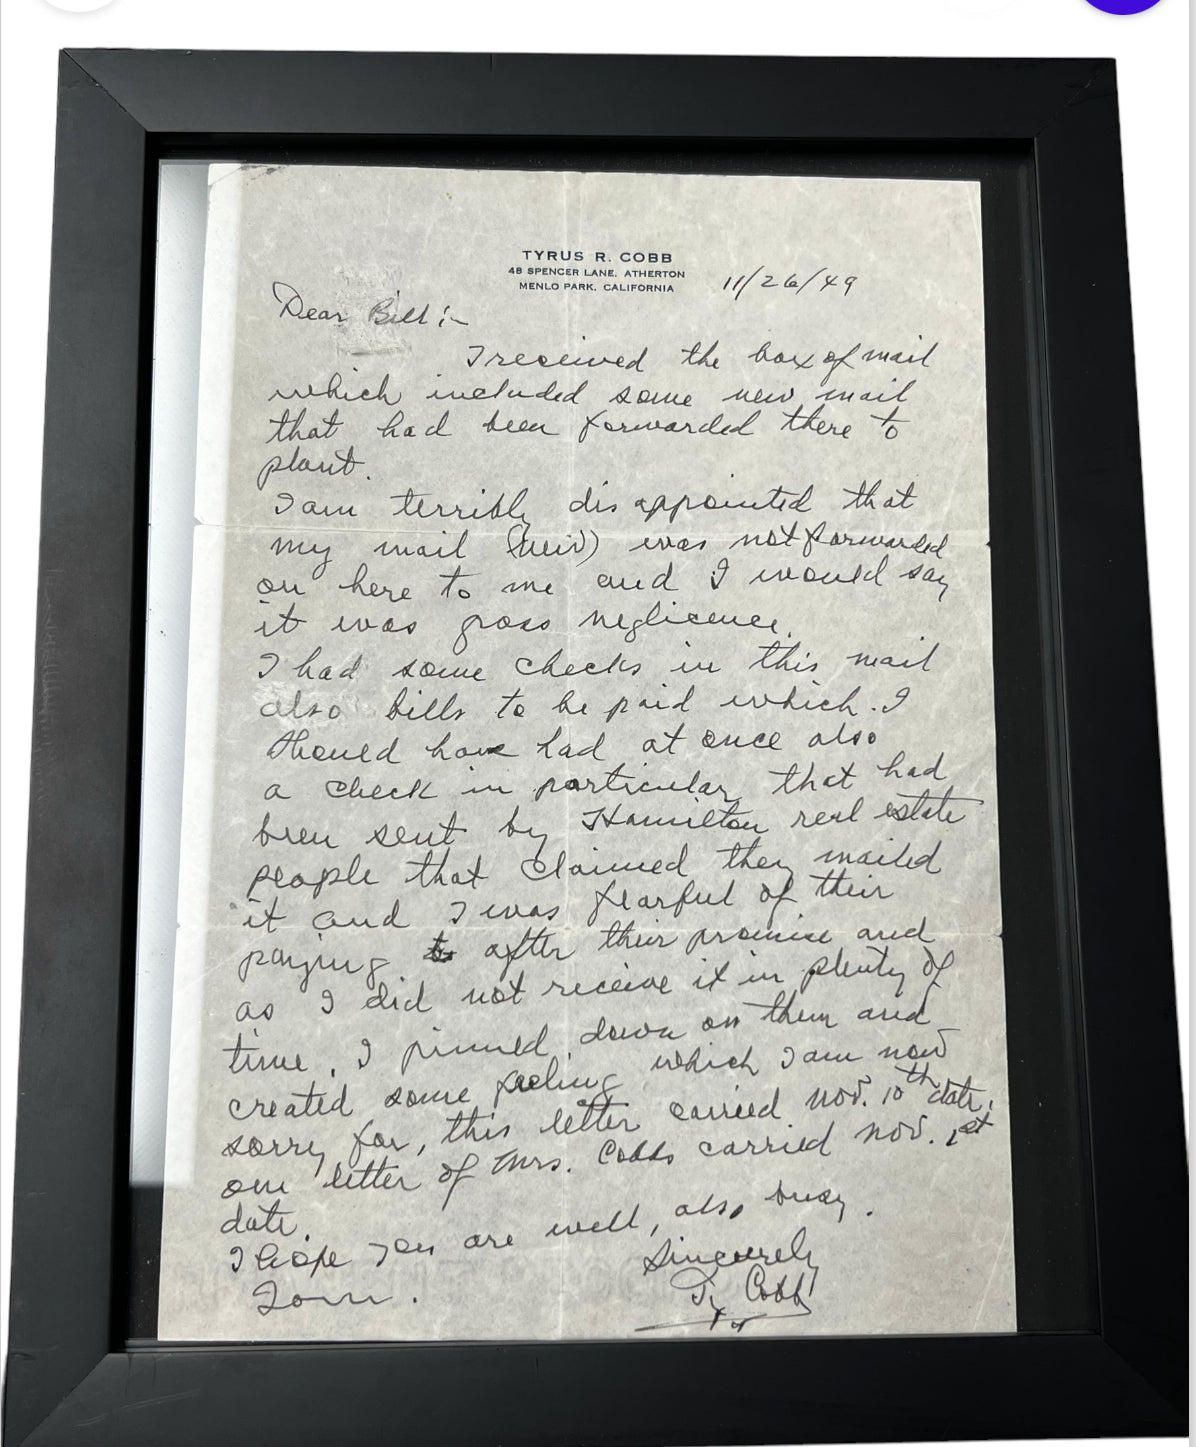 TYRUS R. COBB
48 SPENCER LANE, ATHERTON
MENLO PARK, CALIFORNIA
11/26/49
Dear Bill :-
I received the box of mail
which included some new mail
that had been forwarded there to
plant.
I am terribly disappointed that
my mail (new) was not forwarded
on here to me and I would say
it was gross neglicence.
I had some checks in this mail
also bills to be paid which I
should have had at once also
a check in particular that had
been sent by Hamilton real estate
people that claimed they mailed
it and I was fearful of their
paying after their promise and
as I did not receive it in plenty of
time, I pinned down on them and
created some feeling which I am now
sorry for, this letter carried Nov. 10th date,
one letter of Mrs. Cobbs carried Nov. 1st
date.
I hope you are well, also busy.
Sincerely
Ty Cobb